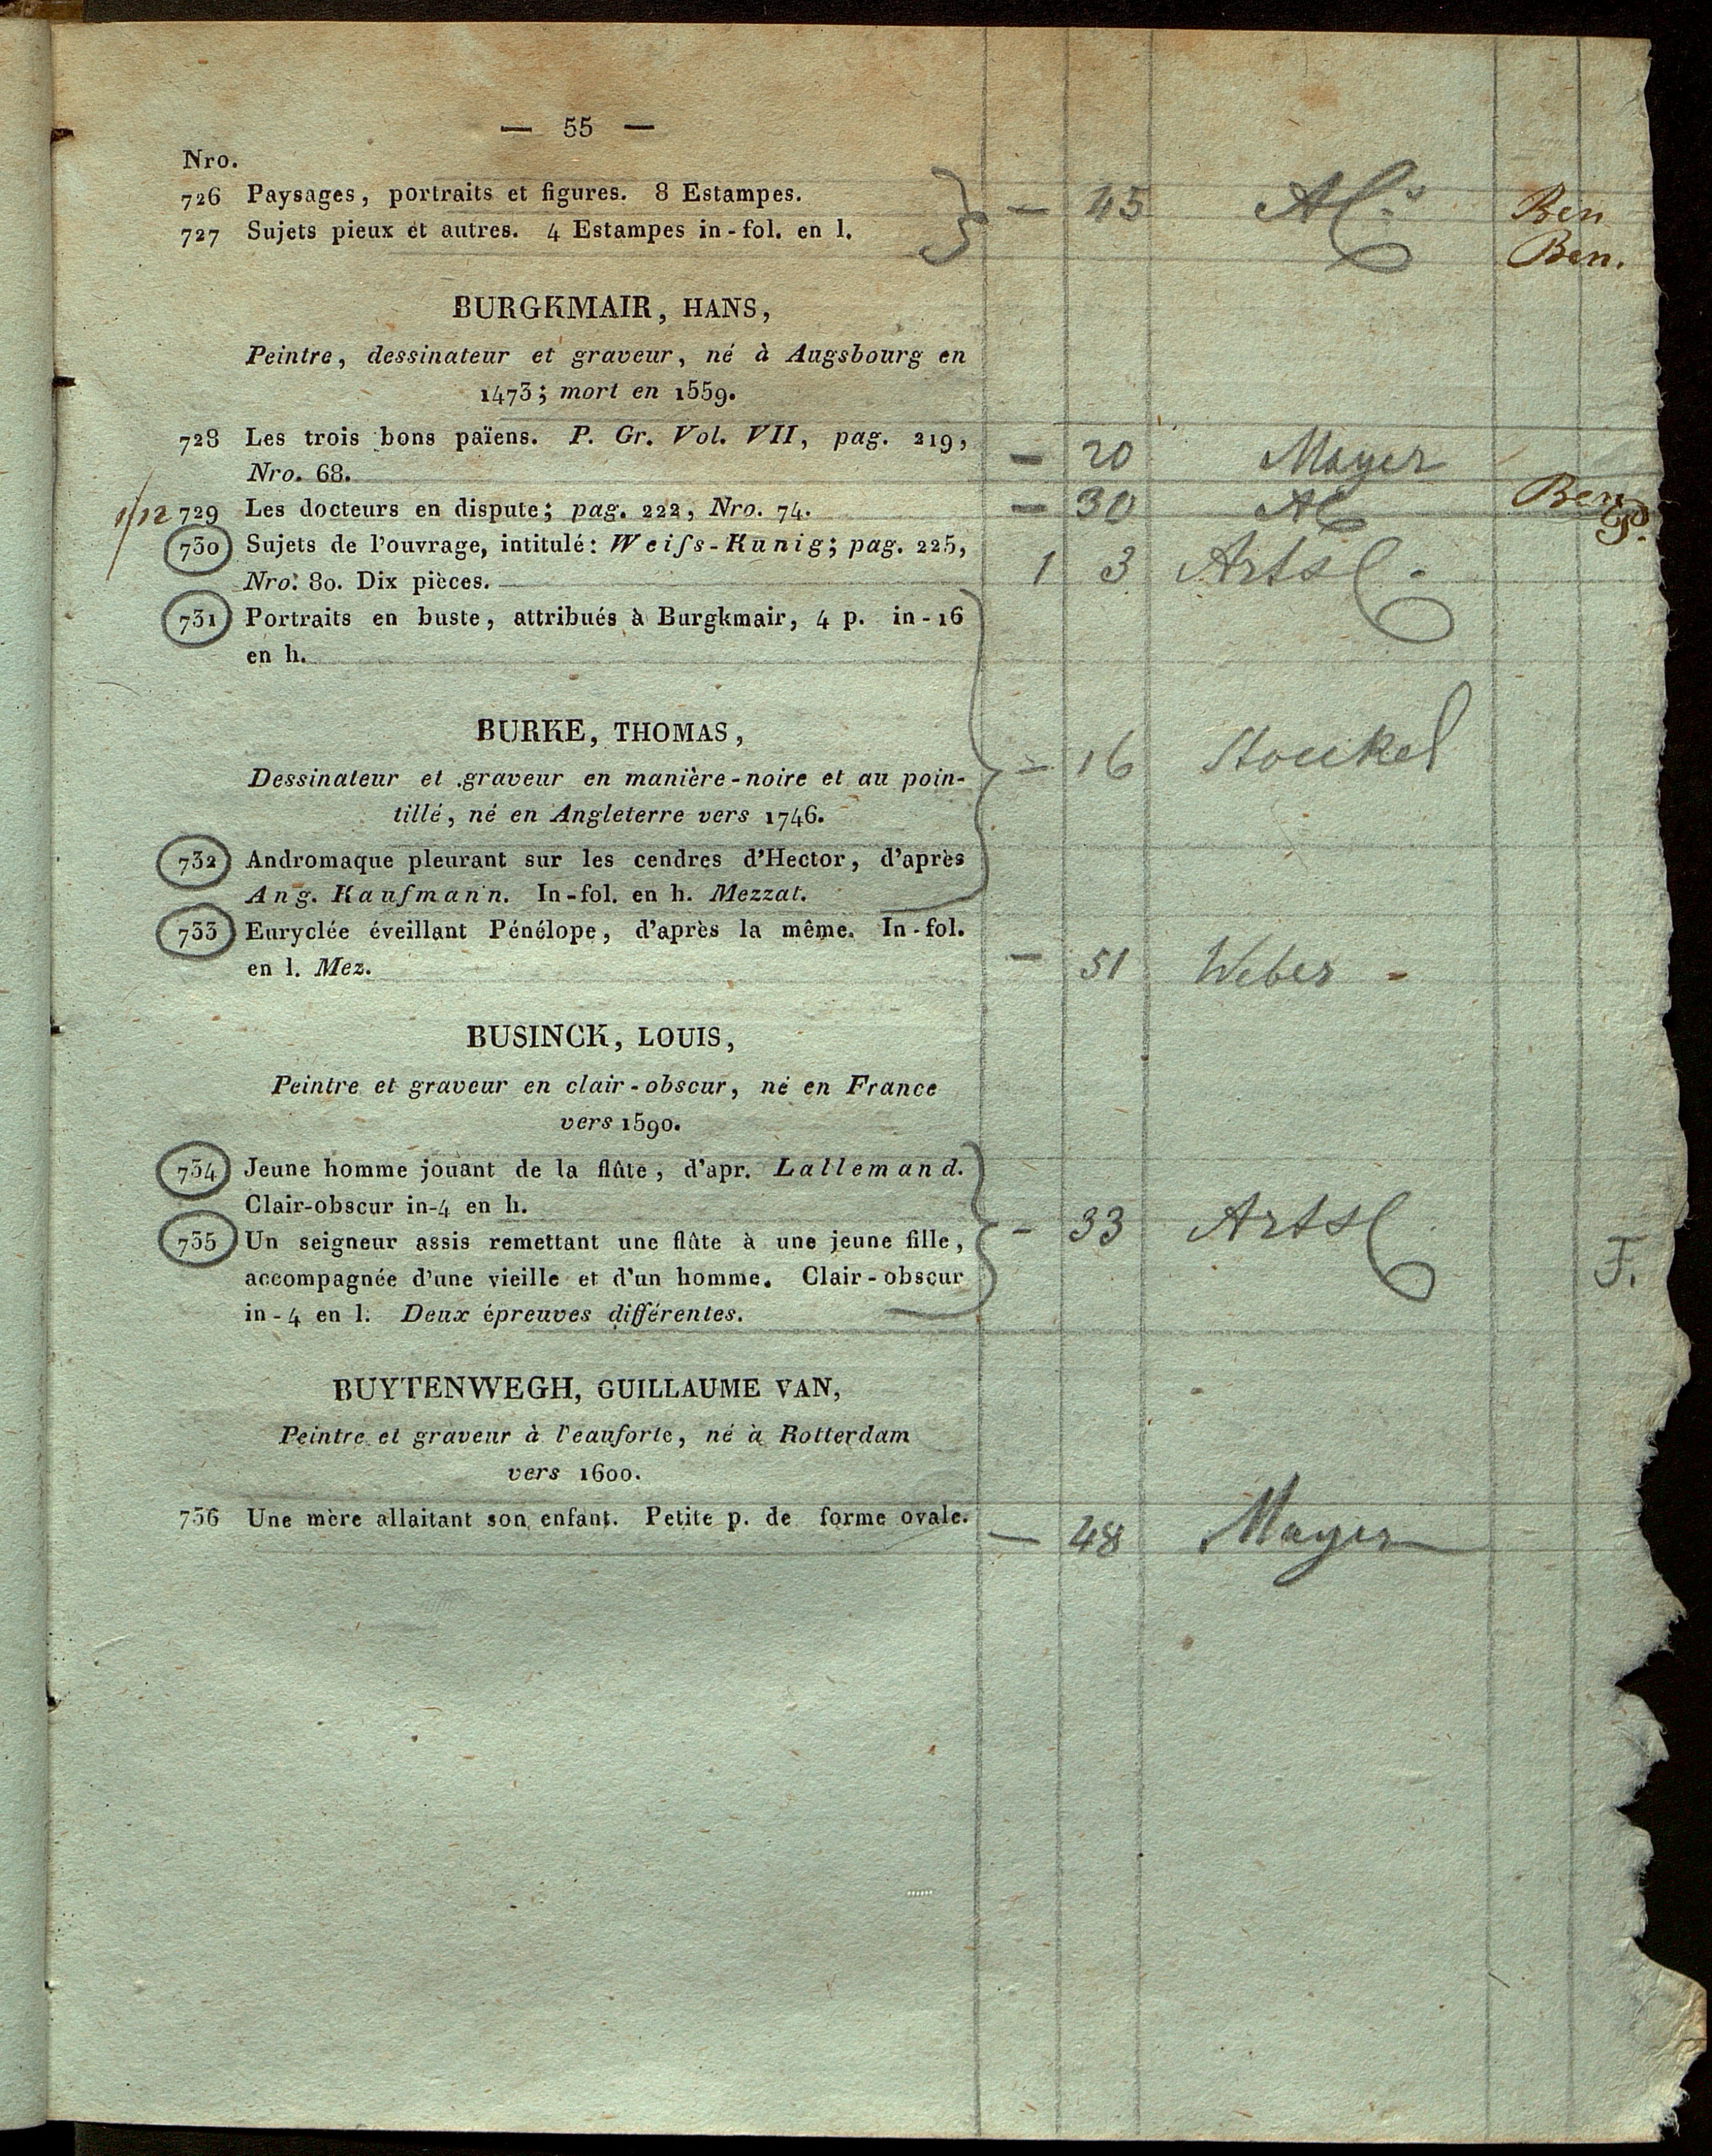 — 55 —
Nro.
726 Paysages, portraits et figures. 8 Estampes. — 45 Al Ben
727 Sujets pieux et autres. 4 Estampes in-fol. en l. Ben.
BURGKMAIR, HANS,
Peintre, dessinateur et graveur, né à Augsbourg en
1473; mort en 1559.
728 Les trois bons païens. P. Gr. Vol. VII, pag. 219,
Nro. 68. — 20 Mayer
1/12 729 Les docteurs en dispute; pag. 222, Nro. 74. — 30 Al Ben
730 Sujets de l'ouvrage, intitulé: Weiſs-Kunig; pag. 225,
Nro. 80. Dix pièces. 1 3 Arts
731 Portraits en buste, attribués à Burgkmair, 4 p. in-16
en h.
BURKE, THOMAS,
Dessinateur et graveur en manière-noire et au poin- — 16 Stoukel
tillé, né en Angleterre vers 1746.
732 Andromaque pleurant sur les cendres d'Hector, d'après
Ang. Kaufmann. In-fol. en h. Mezzat.
733 Euryclée éveillant Pénélope, d'après la même. In-fol.
en l. Mez. — 51 Weber -
BUSINCK, LOUIS,
Peintre et graveur en clair-obscur, né en France
vers 1590.
734 Jeune homme jouant de la flûte, d'apr. Lallemand.
Clair-obscur in-4 en h. - 33 Arts
735 Un seigneur assis remettant une flûte à une jeune fille,
accompagnée d'une vieille et d'un homme. Clair-obscur F.
in-4 en l. Deux épreuves différentes.
BUYTENWEGH, GUILLAUME VAN,
Peintre et graveur à l'eauforte, né à Rotterdam
vers 1600.
736 Une mère allaitant son enfant. Petite p. de forme ovale. — 48 Mayer